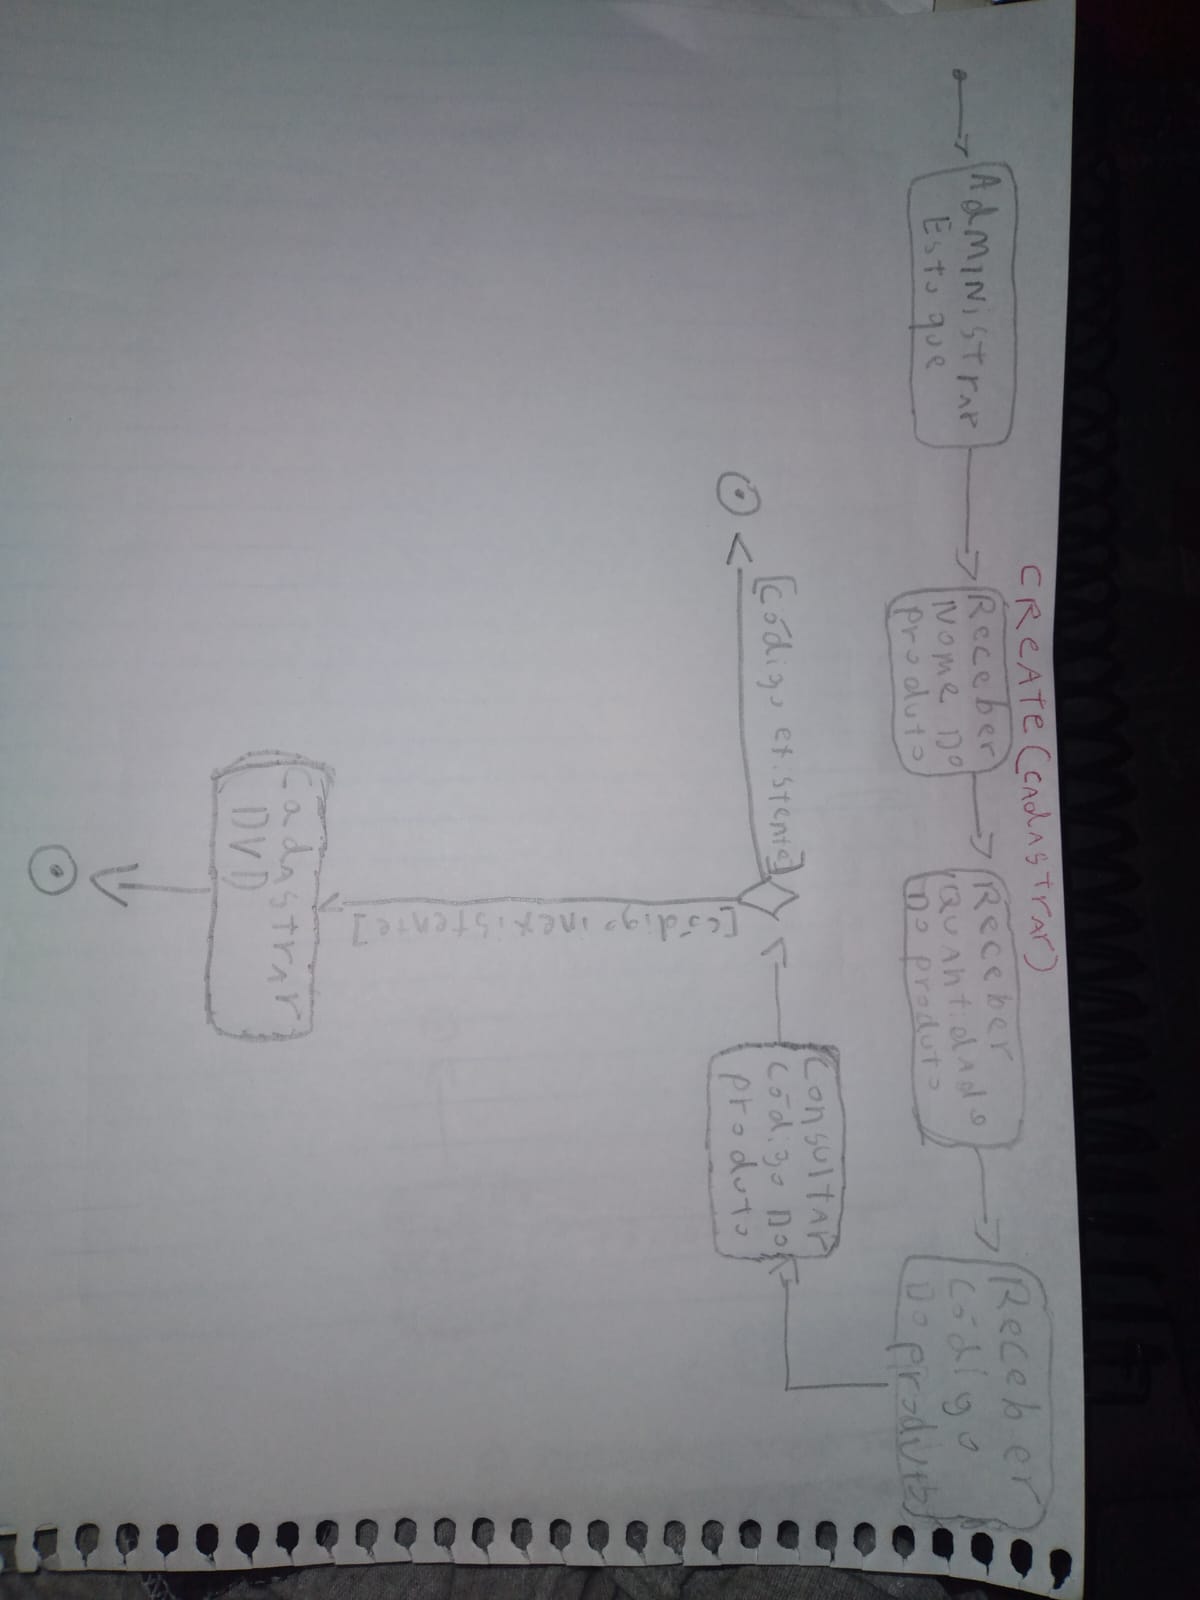 CREATE (CADASTRAR)
Administrar
Estoque
Receber
Nome Do
produto
Receber
Quantidade
Do produto
Receber
Código
Do produto
Consultar
Código Do
produto
[Código existente]
[Código inexistente]
Cadastrar
DVD